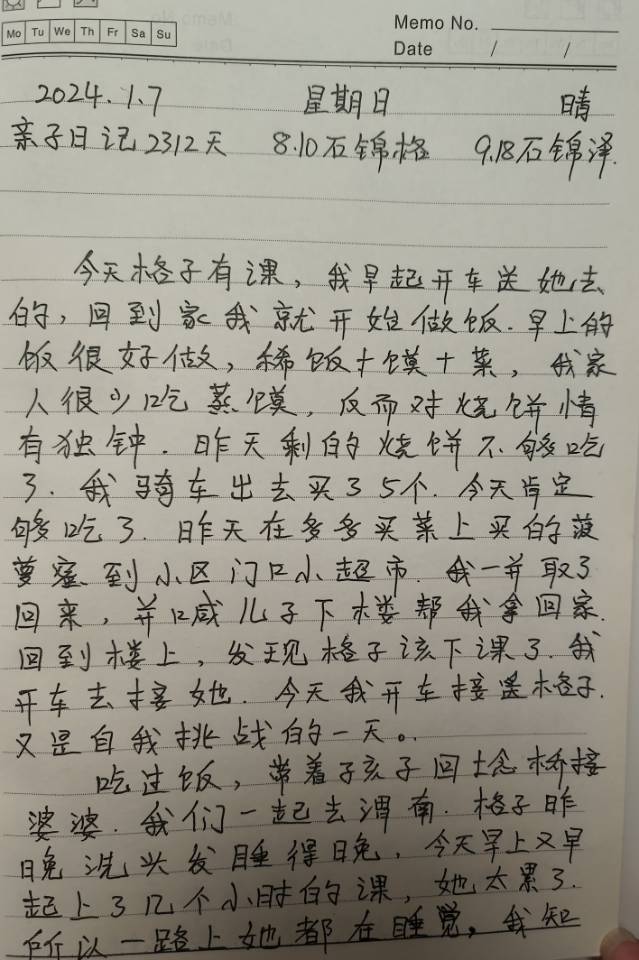 Memo No.
Mo Tu We Th Fr Sa Su
Date / /
2024.1.7 星期日 晴
亲子日记2312天 8.10石锦格 9.18石锦泽.
今天格子有课，我早起开车送她去
的，回到家我就开始做饭.早上的
饭很好做，稀饭+馍+菜，我家
人很少吃蒸馍，反而对烧饼情
有独钟.昨天剩的烧饼不够吃
了.我骑车出去买了5个.今天肯定
够吃了.昨天在多多买菜上买的菠
萝蜜到小区门口小超市.我一并取了
回来，并喊儿子下楼帮我拿回家.
回到楼上，发现格子该下课了.我
开车去接她.今天我开车接送格子.
又是自我挑战的一天。.
吃过饭，带着孩子回念桥接
婆婆.我们一起去渭南.格子昨
晚洗头发睡得晚，今天早上又早
起上了几个小时的课，她太累了.
所以一路上她都在睡觉，我知